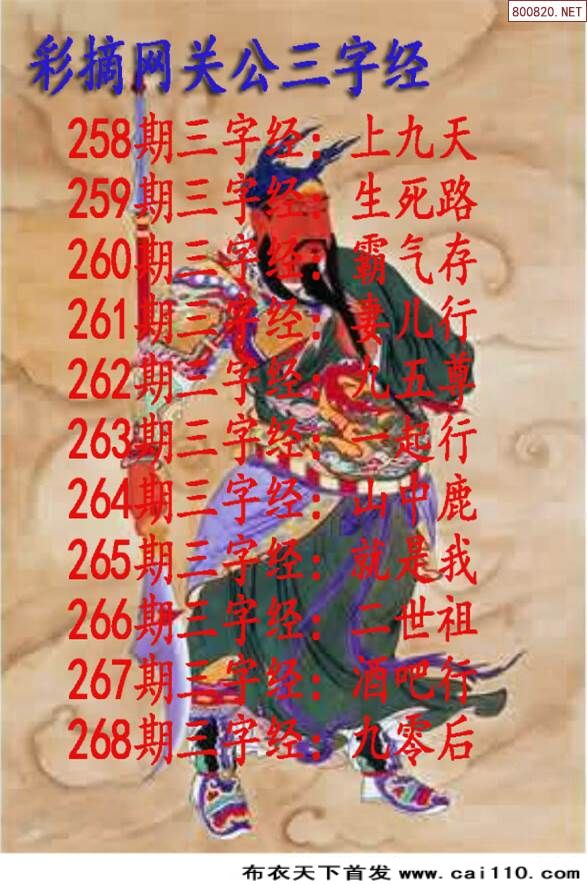 800820.NET
彩摘网关公三字经
258期三字经：上九天
259期三字经：生死路
260期三字经：霸气存
261期三字经：妻儿行
262期三字经：九五尊
263期三字经：一起行
264期三字经：山中鹿
265期三字经：就是我
266期三字经：二世祖
267期三字经：酒吧行
268期三字经：九零后
布衣天下首发 www.cai110.com